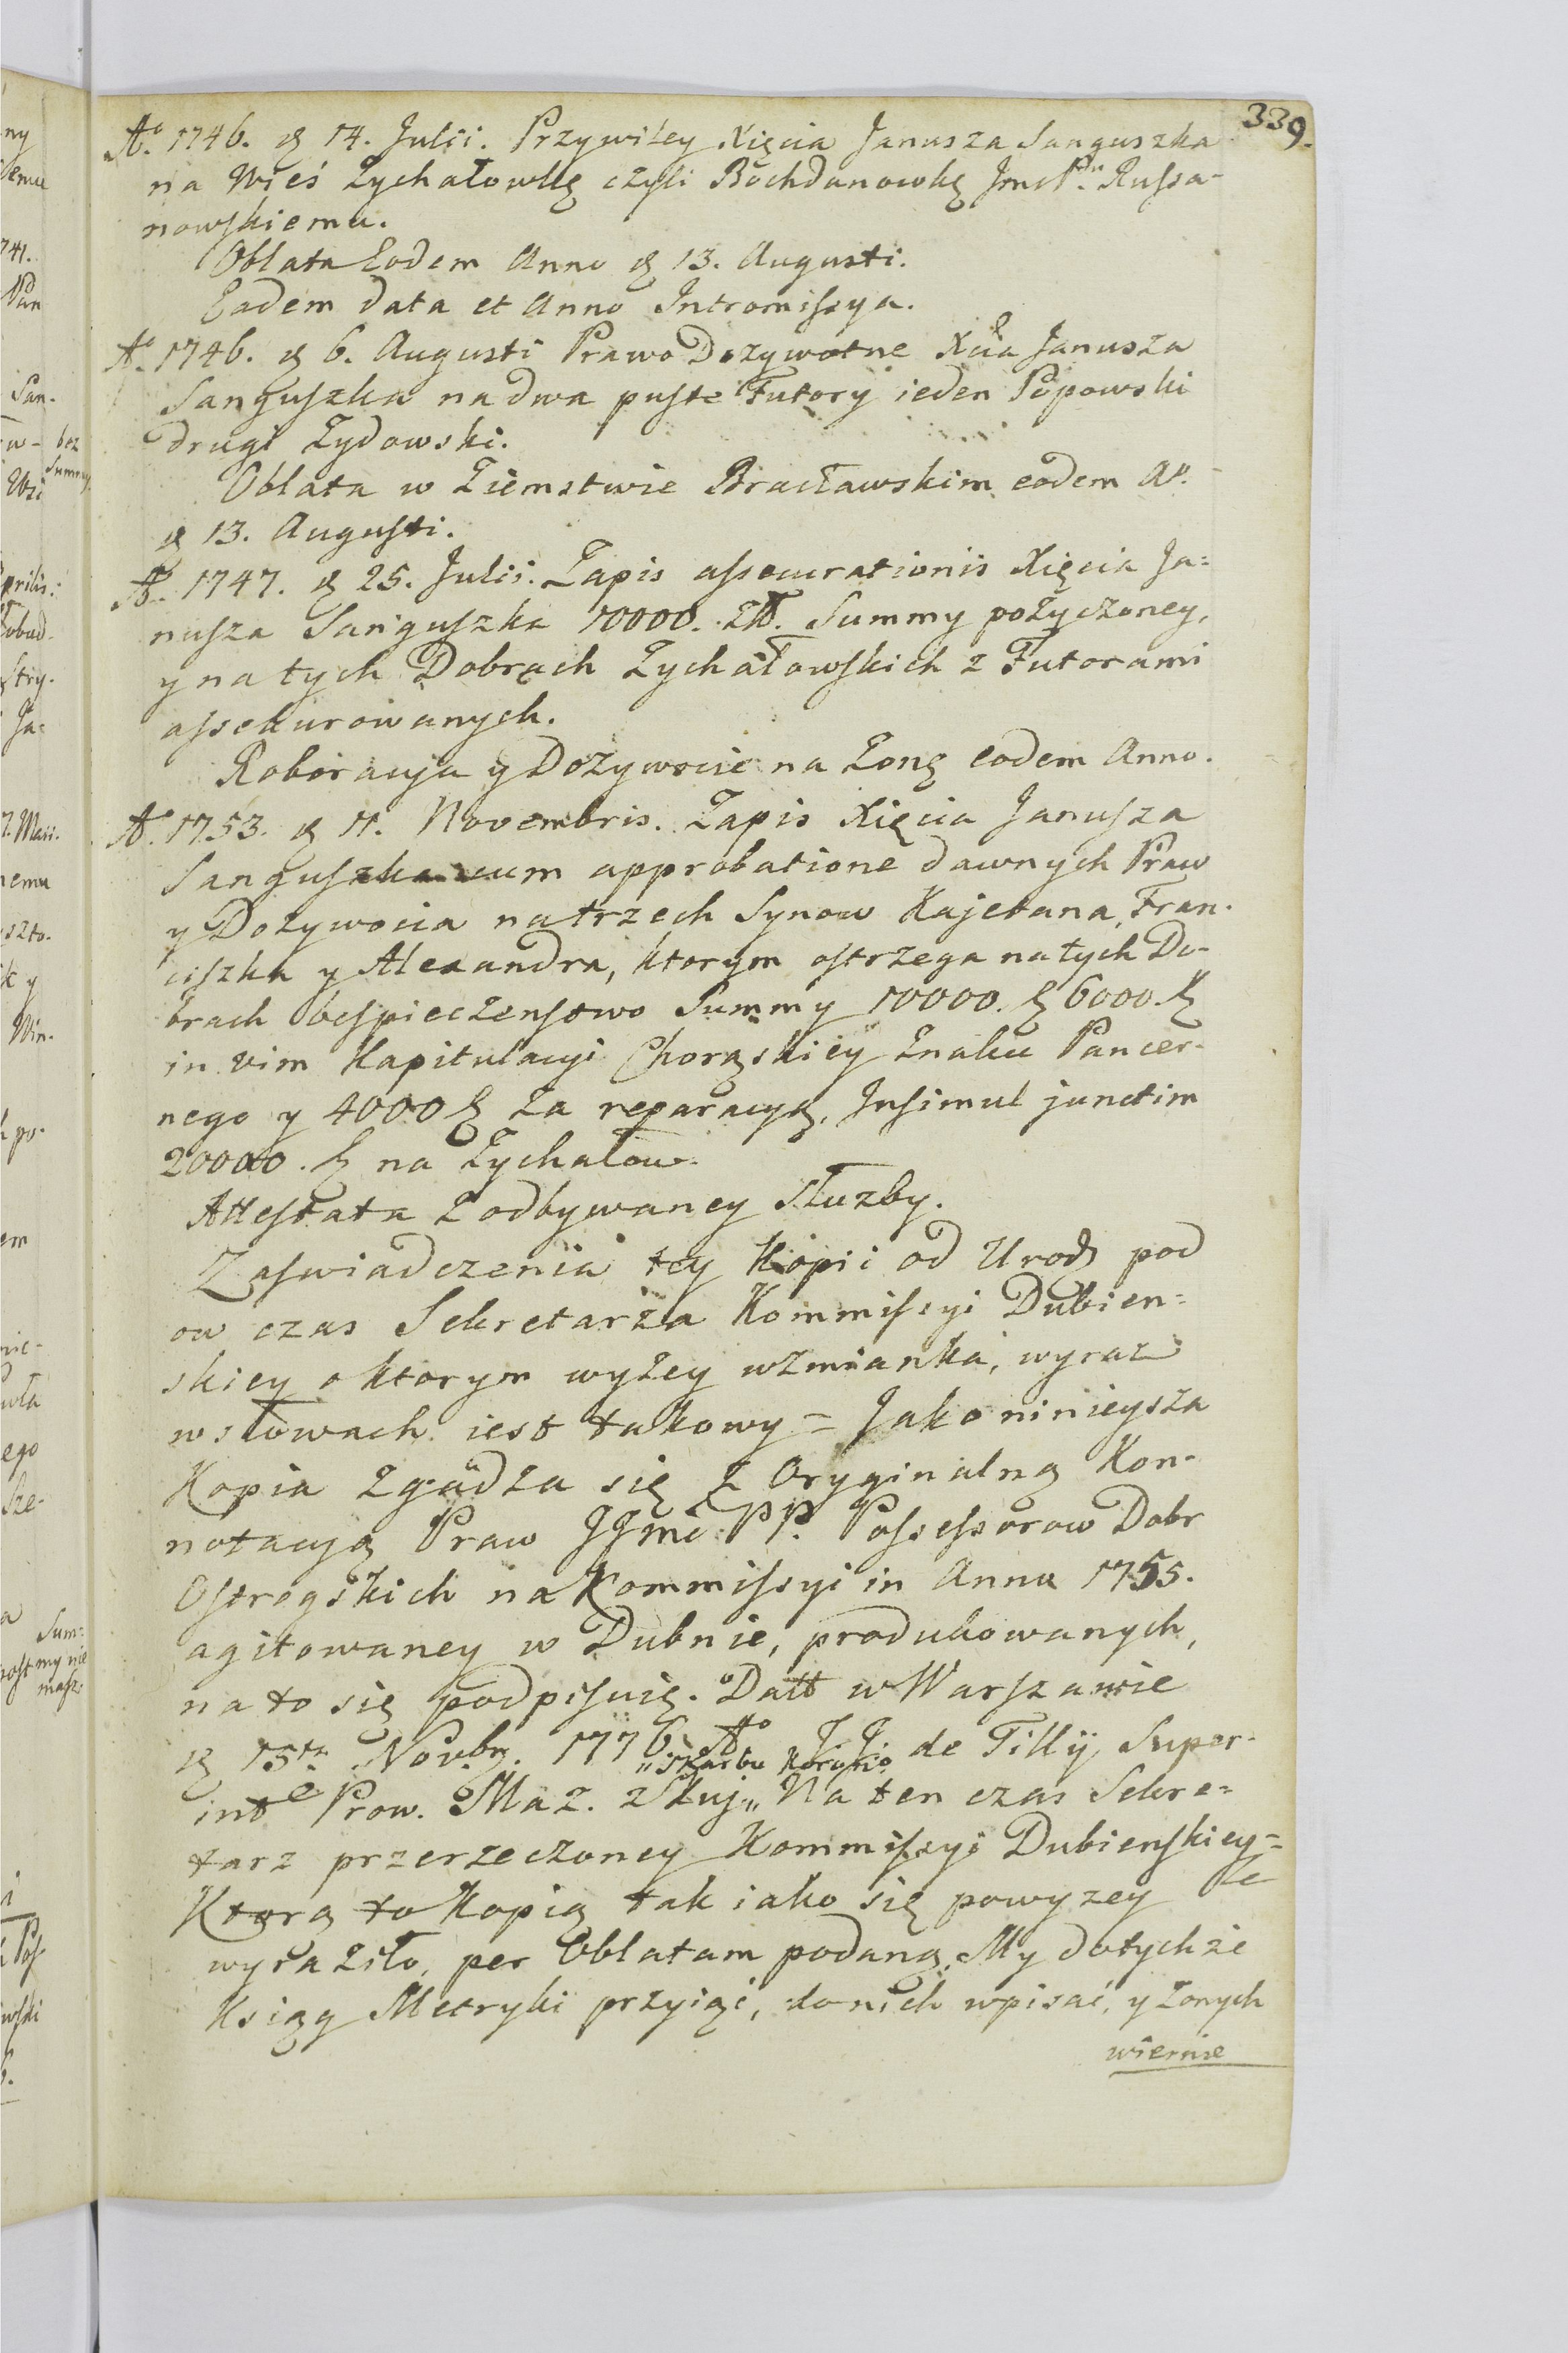 339.
Aº. 1746. d 14. Julii. Przywiley Xięcia Janusza Sanguszka
na Wieś Zychałowkę czyli Bochdanowkę JmcPu. Russa-
nowskiemu.
Oblata Eodem Anno d 13. Augusti.
Eadem data et Anno Intromissya.
Aº. 1746. d 6. Augusti Prawo Dozywotne Xcia Janusza
Sanguszka na dwa puste Futory ieden Popowski
drugi Zydowski.
Oblata w Ziemstwie Bracławskim eodem Aº.
d 13. Augusti.
Aº. 1747. d 25. Julii. Zapis assecurationis Xięcia Ja=
nusza Sanguszka 10000. Zł. Summy pożyczoney,
y na tych Dobrach Zychałowskich z Futorami
assekurowanych.
Roboracyja y Dożywocie na Zonę eodem Anno.
Aº. 1753. d 11. Novembris. Zapis Xięcia Janusza
Sanguszka cum approbatione dawnych Praw
y Dozywocia na trzech Synow Kajetana, Fran-
ciszka y Alexandra, ktorym ostrzega na tych Do-
brach bespieczenstwo Summy 10000. y 6000.
in vim Kapitulacyi Chorąskiey Znaku Pancer-
nego y 4000 za reparacyą, Insimul junctim
20000. na Zychałow.
Attestata z odbywaney Służby.
Zaswiadczenia tey Kopii od Urodz pod
ow czas Sekretarza Kommissyi Dubien=
skiey o ktorym wyżey wzmianka, wyraz
w słowach iest takowy = Jako ninieysza
Kopia zgadza się z Oryginalną Kon-
notacyą Praw JJmć PP. Possessorow Dobr
Ostrogskich na Kommissyi in Anno 1755.
agitowaney w Dubnie, produkowanych,
na to się podpisuię. Datt w Warszawie
d 15ta Novbry. 1776 Aº J. J. de Tilly Super-
„Skarbu Koronno
int e Prow. Maz. z Kuj „ Na ten czas Sekre=
tarz przerzeczoney Kommissyi Dubienskiey =
Ktorą to Kopią tak iako się powyzey
wyraziło, per Oblatam podaną, My do tychże
Ksiąg Metryki przyiąć, do nich wpisać, y z onych
wiernie
bez
Summy.
Sum=
my nie
masz